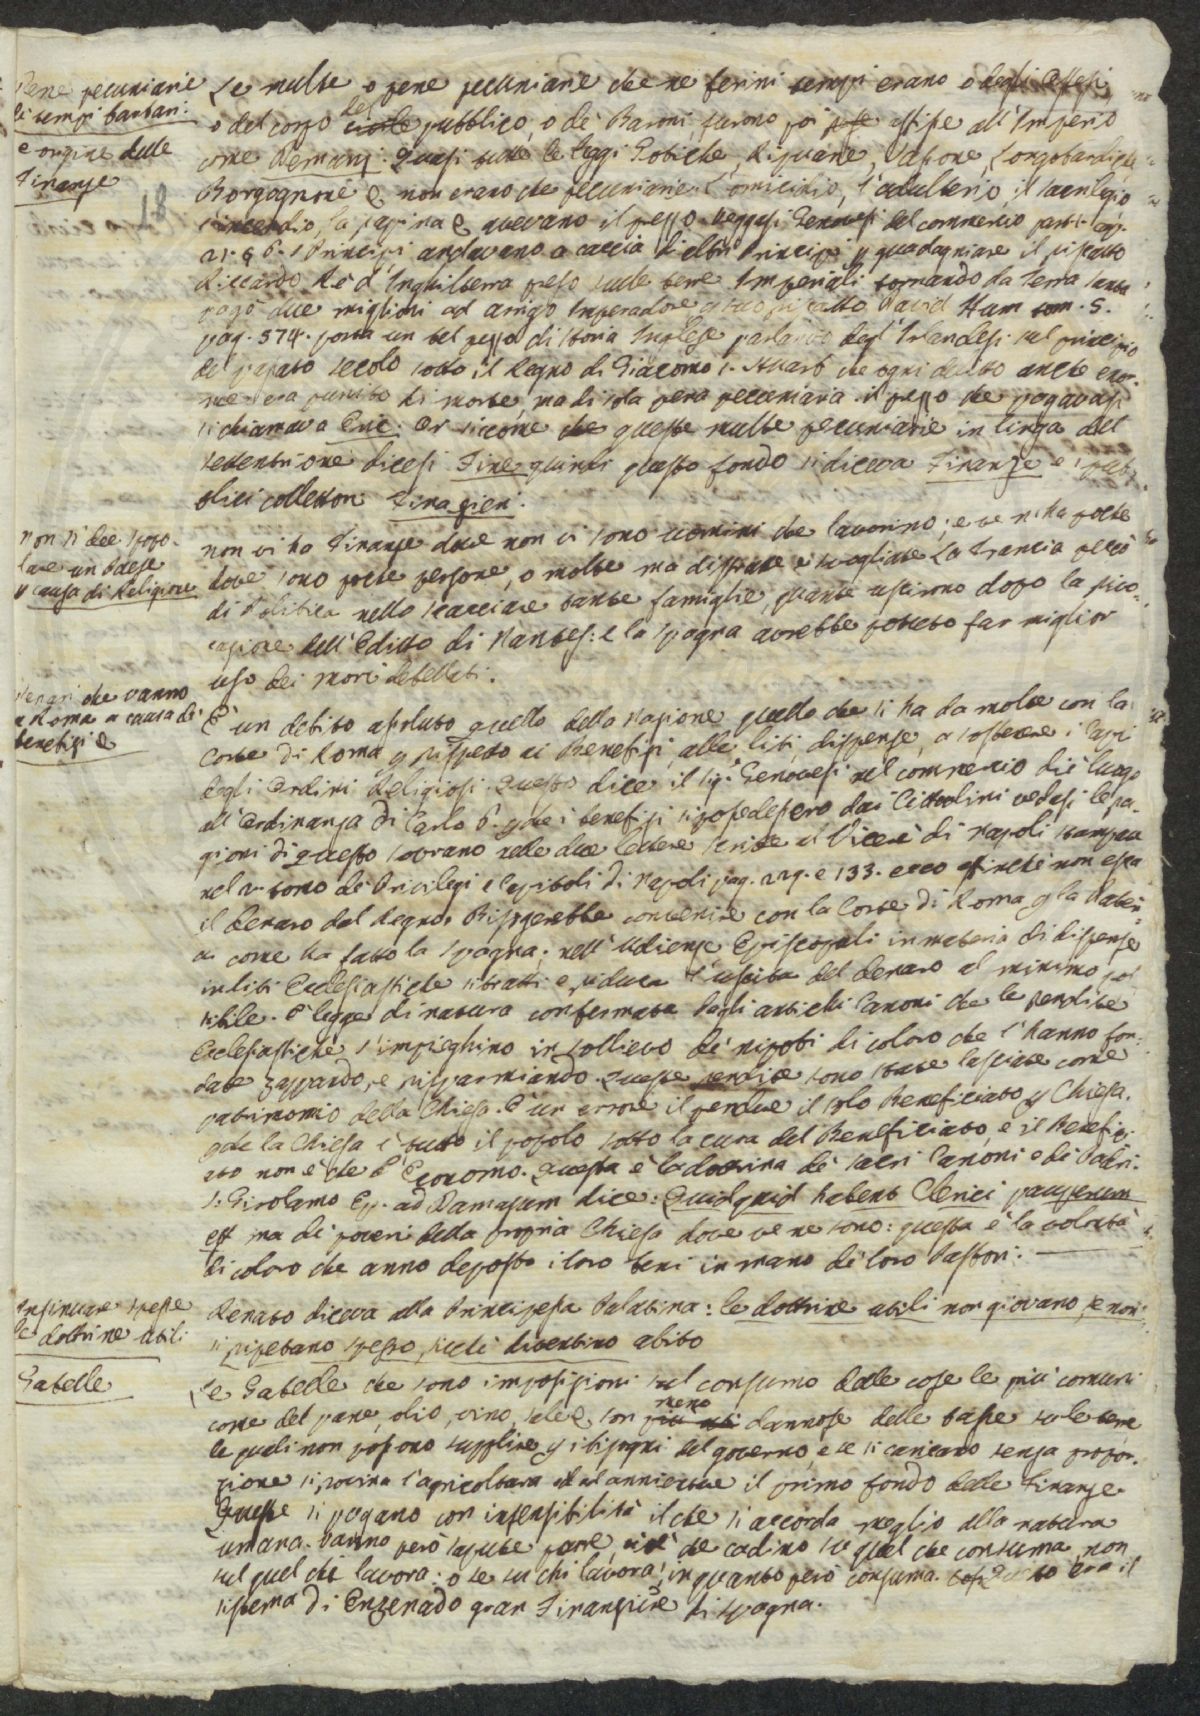 Pene pecuniarie
di tempi barbari:
e origine delle
Finanze
Le multe o pene pecuniarie che ne ferini tempi erano o degli Offesi,
o del corpo del pubblico, o de' Baroni, furono poi ascritte all'Imperio
come Demanj. Quasi tutte le leggi Gotiche, Ripuarie, Sassone, Longobardiche
Borgognone &c non erano che pecuniarie: l'omicidio, l'adulterio, il sacrilegio
l'incendio, la rapina &c avevano il prezzo. Veggasi Genovesi del commercio part. 1. cap.
21. § 6. I Principi andavano a caccia di altri Principi p guadagniare il riscatto
Riccardo Rè d'Inghilterra preso sulle terre Imperiali tornando da Terra santa
pagò due miglioni ad arrigo Imperadore p suo riscatto. David Hum tom. 5.
pag. 574. porta un bel pezzo di storia Inglese parlando degl'Irlandesi sul principio
del passato secolo sotto il Regno di Giacomo 1. Stuard che ogni delitto anche enor-
me era punito di morte, ma di sola pena pecuniaria. il prezzo che pagavasi
si chiamava Eric. Or siccome che queste multe pecuniarie in lingua del
settentrione dicesi Fine quindi questo fondo si diceva Finanze e i pub-
blici collettori Finazieri.
non si dee spopo-
lare un Paese
p causa di Religione
non vi ha Finanze dove non vi sono uomini che lavorino; e ve n'ha poche
dove sono poche persone, o molte ma distratte e svogliate. La Francia peccò
di Politica nello scacciare tante famiglie, quante uscirono dopo la rivo-
cazione dell'Editto di Nantes: e la Spagna avrebbe potuto far miglior
uso dei mori debellati.
Denari che vanno
a Roma a causa di
benefizi &c
E' un debito assoluto quello della Nazione quello che si ha da molte con la
Corte di Roma p rispetto ai Benefizi, alle liti, dispense, a sostenere i Capi
degli Ordini Religiosi. Questo dice il Sig.r Genovesi nel commercio diè luogo
all'Ordinanza di Carlo 6. p che i benefizi si possedessero dai Cittadini vedasi le ra-
gioni di questo sovrano nelle due lettere scritte al Vicerè di Napoli stampate
nel 2. tomo de' Privilegi e Capitoli di Napoli pag. 229. e 133. ecco affinchè non esca
il denaro dal Regno. Bisognerebbe convenire con la Corte di Roma p la Dateri-
a come ha fatto la Spagna: nell'Udienze Episcopali in materia di dispense
in liti Ecclesiastiche si tratti e riduca l'uscita del denaro al minimo pos
sibile. E' legge di natura confermata dagli antichi Canoni che le rendite
Ecclesiastiche s'impieghino in sollievo de' nipoti di coloro che l'hanno fon-
date zappando, e risparmiando. Queste rendite sono state lasciate come
patrimonio della Chiesa. E' un errore il prendere il solo Beneficiato p Chiesa.
p che la Chiesa è tutto il popolo sotto la cura del Beneficiato, e il Benefici-
ato non è che l'Economo. Questa è la dottrina de' sacri Canoni e de' Padri.
S. Girolamo Ep. ad Damasum dice: Quidquid habent Clerici pauperum
est ma di poveri della propria Chiesa dove ve ne sono: questa è la volontà
di coloro che anno deposto i loro beni in mano de' loro Pastori:
Insinuare spesse
le dottrine utili
Renato diceva alla Principessa Palatina: le dottrine utili non giovano, se non
si ripetano spesso, sicchè diventino abito
Gabelle
Le Gabelle che sono imposizioni sul consumo delle cose le più comuni
come del pane, olio, vino, sale &c son meno dannose delle tasse sulle terre
le quali non possono supplire p i bisogni del governo, e se si caricano senza propor-
zione si rovina l'agricoltura ed ad annientare il primo fondo delle Finanze.
Queste si pagano con insensibilità il che si accorda meglio alla natura
umana. Vanno però sapute porre, cioè che cadino su quel che consuma, non
sul quel che lavora: o se su chi lavora, in quanto però consuma. Questo era il
sistema di Enzenado gran Finanziere di Spagna.